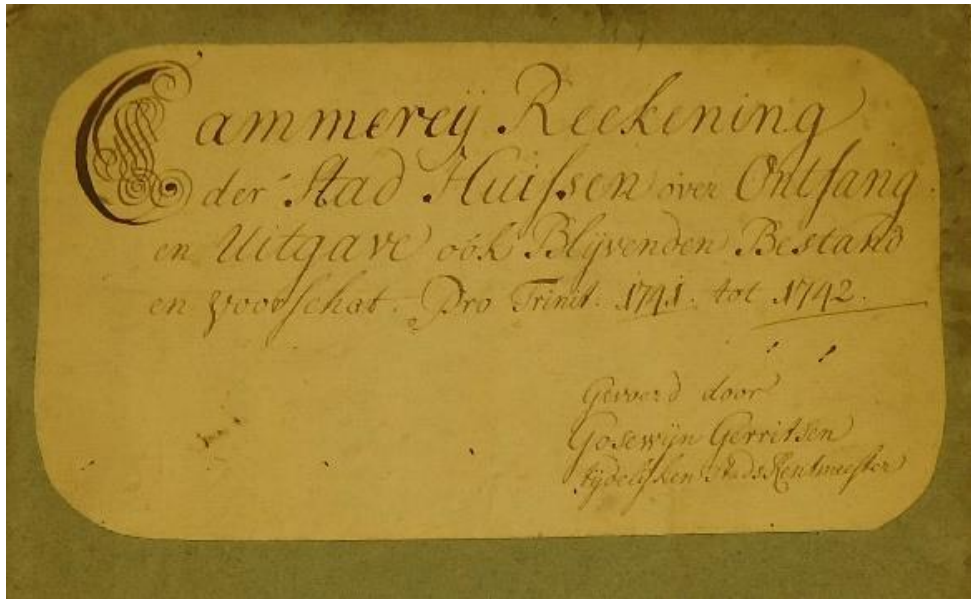 Cammereÿ Reekening
der Stad Huissen over Ontfang
en Uitgave oók Blijvenden Bestand
en voorschat. Pro Trinit. 1741. tot 1742.
Gevoerd door
Gosewijn Gerritsen
tijdelijken Stads Rentmeester